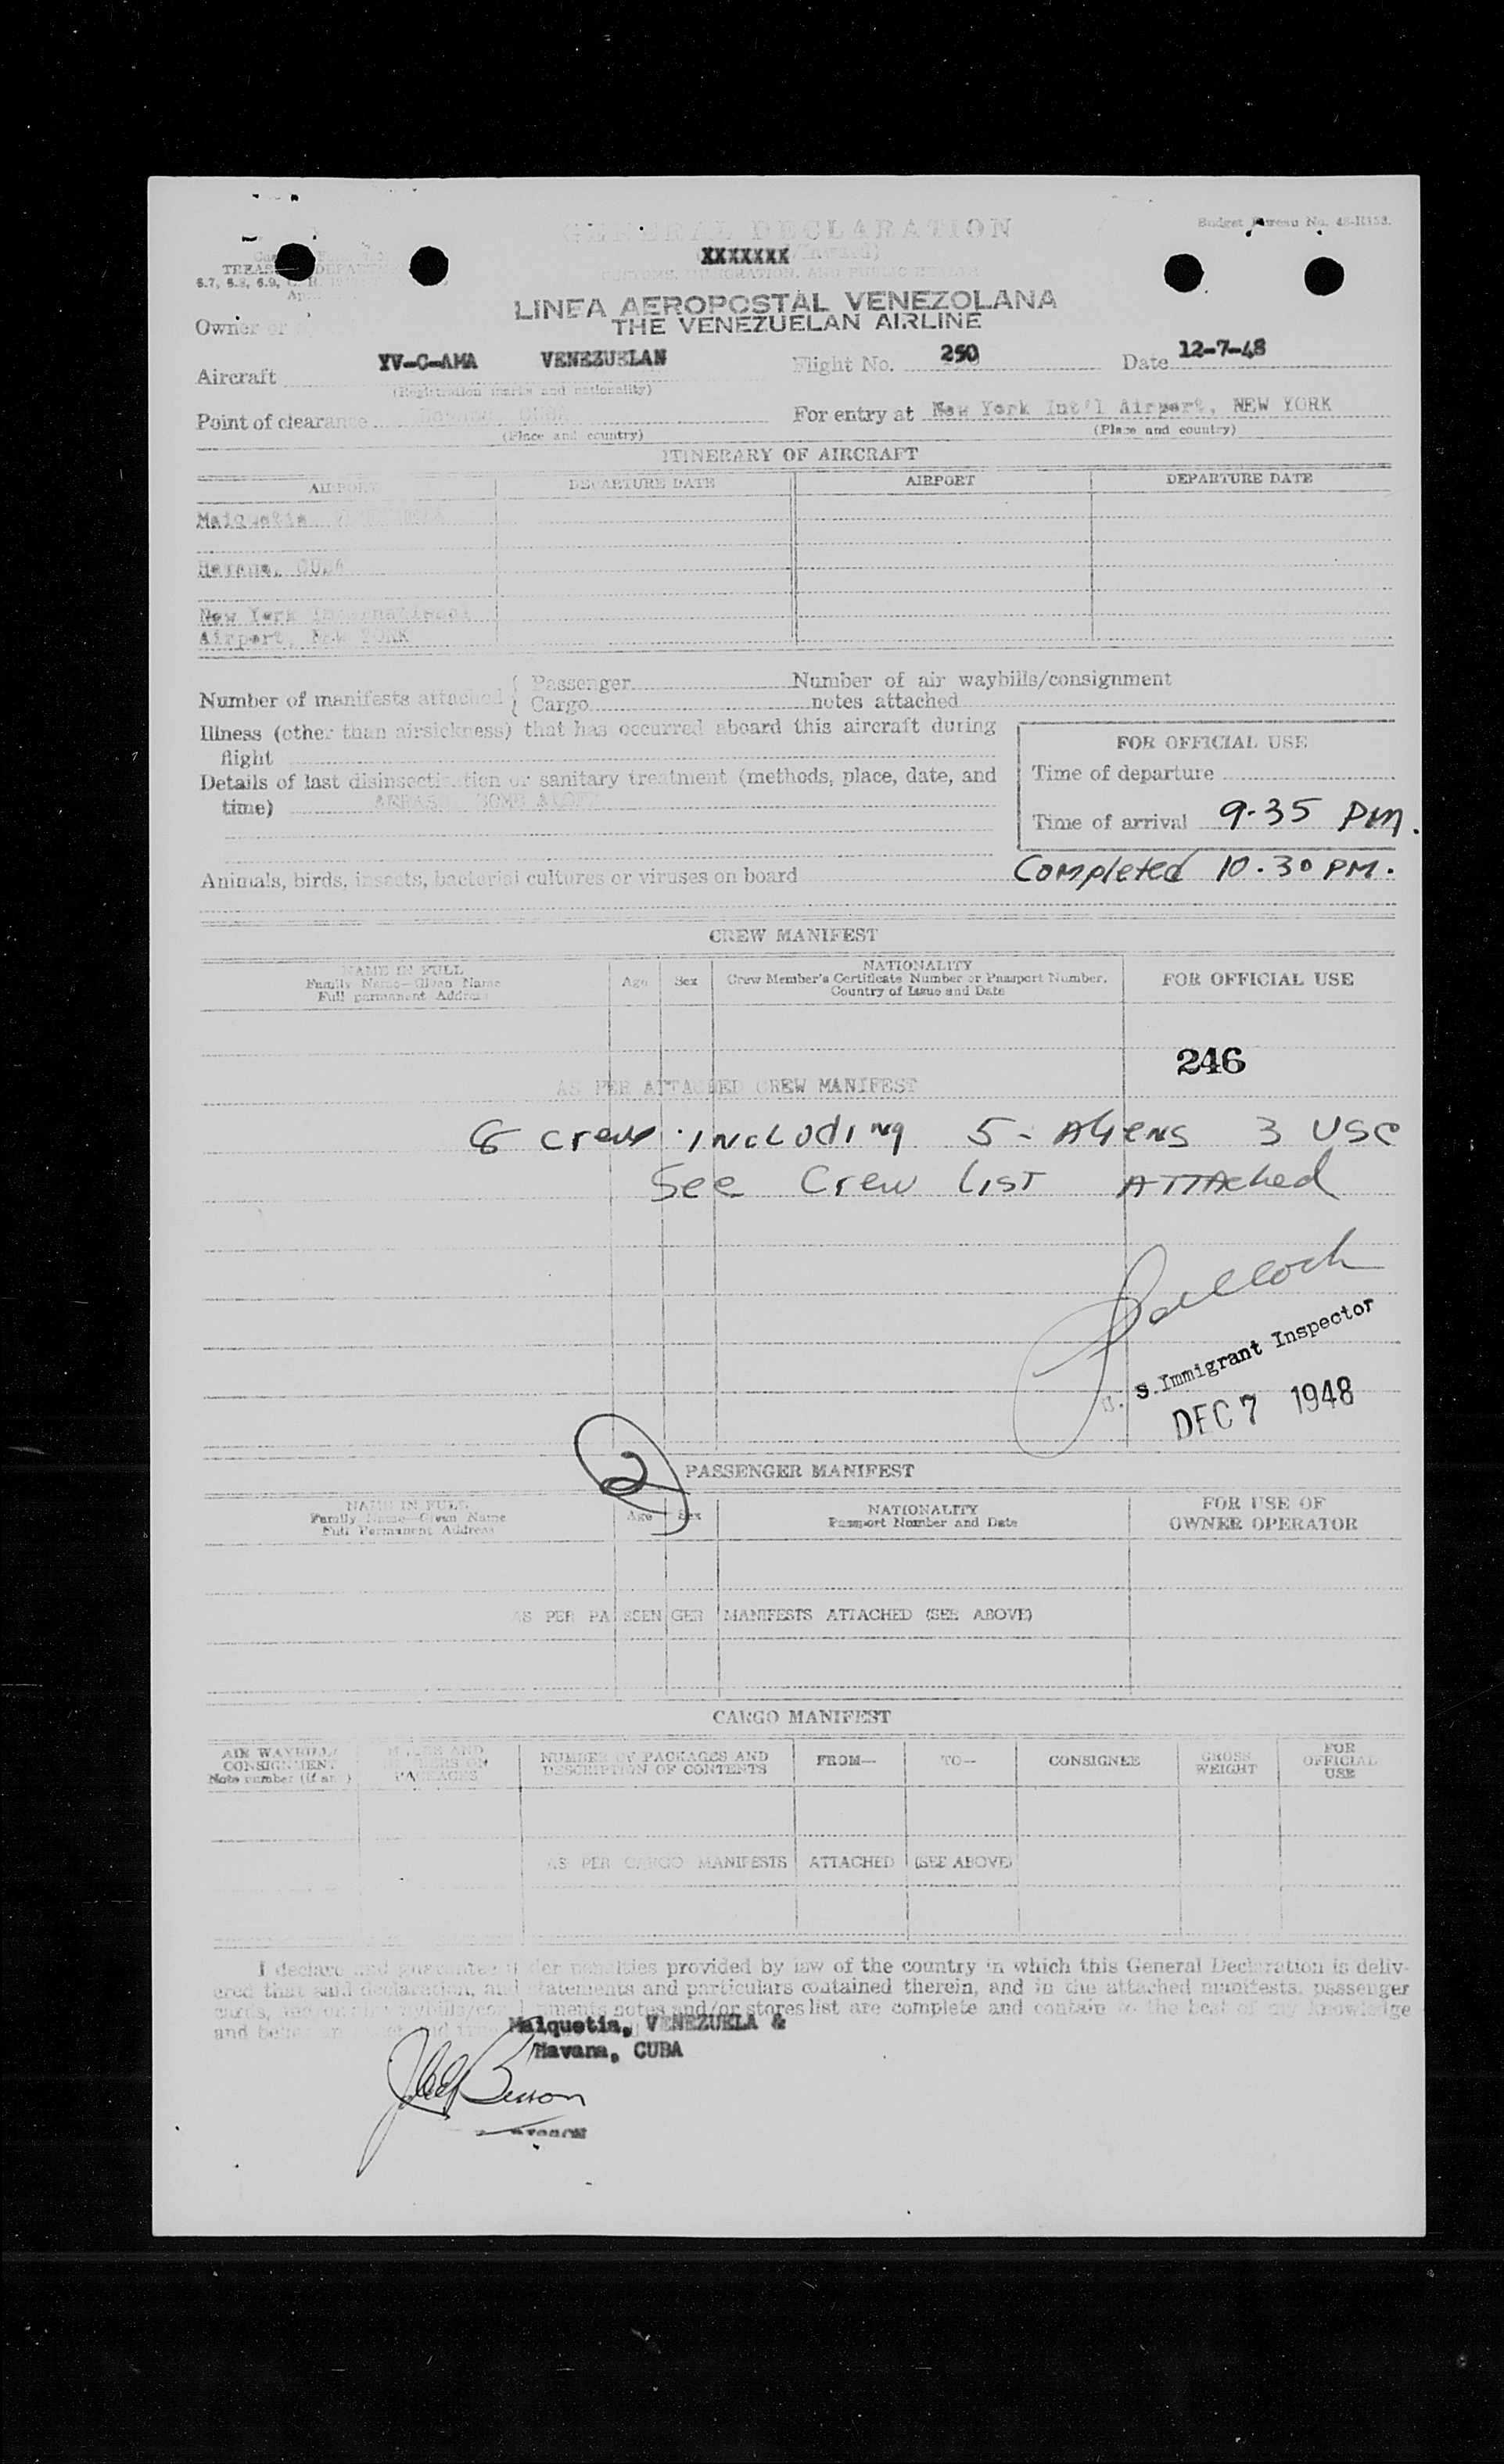 GENERAL DECLARATION
Budget Bureau No. 48-R153.
XXXXXXX
TREAS
6.7, 6.8, 6.9,
LINEA AEROPOSTAL VENEZOLANA
THE VENEZUELAN AIRLINE
Owner or
Aircraft YV-C-AMA VENEZUELAN Flight No. 250 Date 12-7-48
(Registration marks and nationality)
Point of clearance CUBA For entry at New York Int'l Airport, NEW YORK
(Place and country) (Place and country)
ITINERARY OF AIRCRAFT
AIRPORT DEPARTURE DATE AIRPORT DEPARTURE DATE
Maiquetia, VENEZUELA
Havana, CUBA
New York International
Airport, NEW YORK
Number of manifests attached { Passenger Number of air waybills/consignment
Cargo notes attached
Illness (other than airsickness) that has occurred aboard this aircraft during
flight
FOR OFFICIAL USE
Details of last disinsectization or sanitary treatment (methods, place, date, and
time)
Time of departure
Time of arrival 9.35 PM.
Completed 10.30 PM.
Animals, birds, insects, bacterial cultures or viruses on board
CREW MANIFEST
NAME IN FULL
Family Name—Given Name
Full permanent Address
Age Sex
NATIONALITY
Crew Member's Certificate Number or Passport Number,
Country of Issue and Date
FOR OFFICIAL USE
246
AS PER ATTACHED CREW MANIFEST
8 crew including 5- Aliens 3 USC
See Crew List Attached
U. S. Immigrant Inspector
DEC 7 1948
2
PASSENGER MANIFEST
NAME IN FULL
Family Name—Given Name
Full Permanent Address
Age Sex
NATIONALITY
Passport Number and Date
FOR USE OF
OWNER OPERATOR
AS PER PASSENGER MANIFESTS ATTACHED (SEE ABOVE)
CARGO MANIFEST
AIR WAYBILL/
CONSIGNMENT
Note number (if any)
MARKS AND
NUMBERS ON
PACKAGES
NUMBER OF PACKAGES AND
DESCRIPTION OF CONTENTS
FROM— TO— CONSIGNEE
GROSS
WEIGHT
FOR
OFFICIAL
USE
AS PER CARGO MANIFESTS ATTACHED (SEE ABOVE)
I declare and guarantee under penalties provided by law of the country in which this General Declaration is deliv-
ered that said declaration, and statements and particulars contained therein, and in the attached manifests, passenger
cards, notes and/or stores list are complete and contain to the best of my knowledge
and
Maiquetia, VENEZUELA &
Havana, CUBA